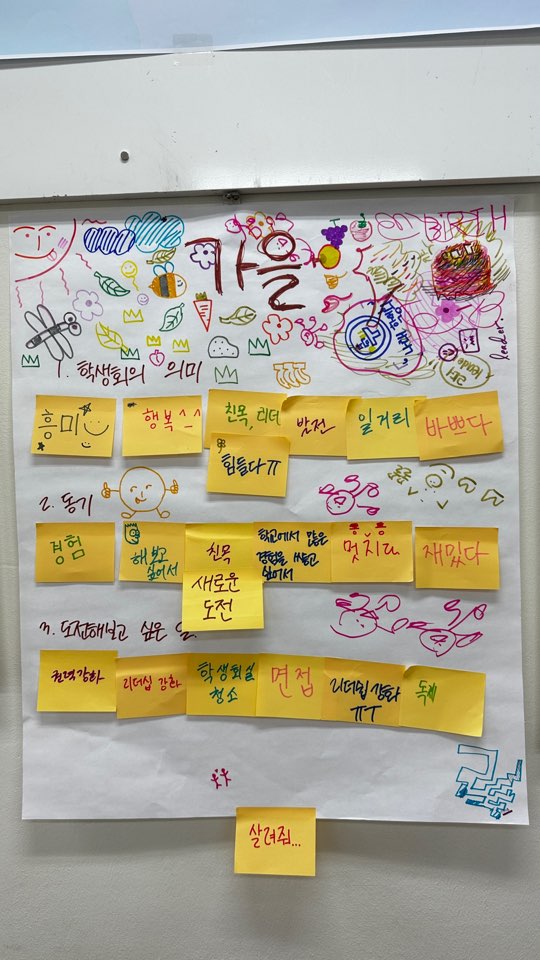 가을
leader.
1. 학생회의 의미
흥미
행복^^
친목, 리더
발전
일거리
바쁘다
힘들다 ㅠ
2. 동기
경험
해보고
싶어서
친목
학교에서 많은
경험을 쌓고
싶어서
멋지다
재밌다
새로운
도전
3. 도전해보고 싶은 일
권력강화
리더십 강화
학생회실
청소
면접
리더쉽 강화
ㅠㅜ
독재
살려줘...